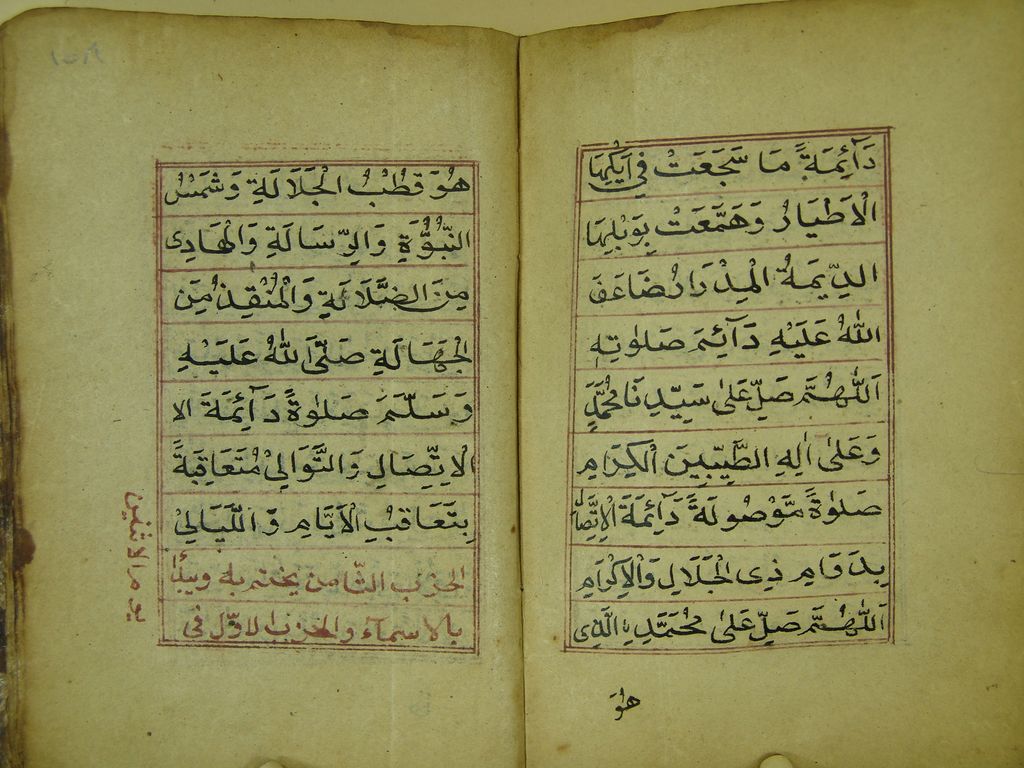 دَآئِمَةً مَا سَجَعَتْ فِي اَيْكِهَا
الْاَطْيَارُ وَهَمَعَتْ بِوَبْلِهَا
الدِّيمَةُ الْمِدْرَارُ ضَاعَفَ
اللهُ عَلَيْهِ دَآئِمَ صَلَوٰتِهِ
اَللّٰهُمَّ صَلِّ عَلٰى سَيِّدِنَا مُحَمَّدٍ
وَعَلٰى اٰلِهِ الطَّيِّبِينَ الْكِرَامِ
صَلٰوةً مَّوْصُولَةً دَآئِمَةَ الْاِتِّصَالِ
بِدَوَامِ ذِى الْجَلَالِ وَالْاِكْرَامِ
اَللّٰهُمَّ صَلِّ عَلٰى مُحَمَّدٍ الَّذِى
هُوَ
هُوَ قُطْبُ الْجَلَالَةِ وَشَمْسُ
النُّبُوَّةِ وَالرِّسَالَةِ وَالْهَادِى
مِنَ الضَّلَالَةِ وَالْمُنْقِذُ مِنَ
الْجَهَالَةِ صَلَّى اللهُ عَلَيْهِ
وَسَلَّمَ صَلٰوةً دَآئِمَةَ الا
الْاِتِّصَالِ وَالتَّوَالِيْ مُتَعَاقِبَةً
بِتَعَاقُبِ الْاَيَّامِ وَاللَّيَالِيْ
الحزب الثامن يختم به ويبدأ
بالاسمآء والحزب الاوّل فى
يوم الاثنين